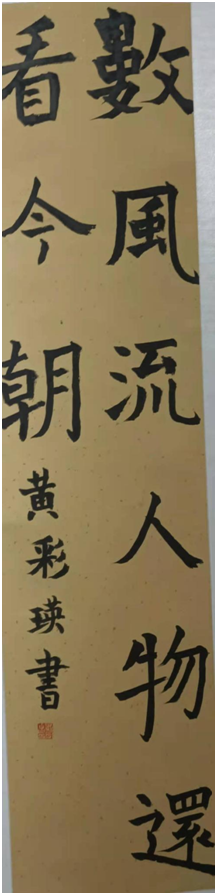 數風流人物還
看今朝
黄彩瑛書